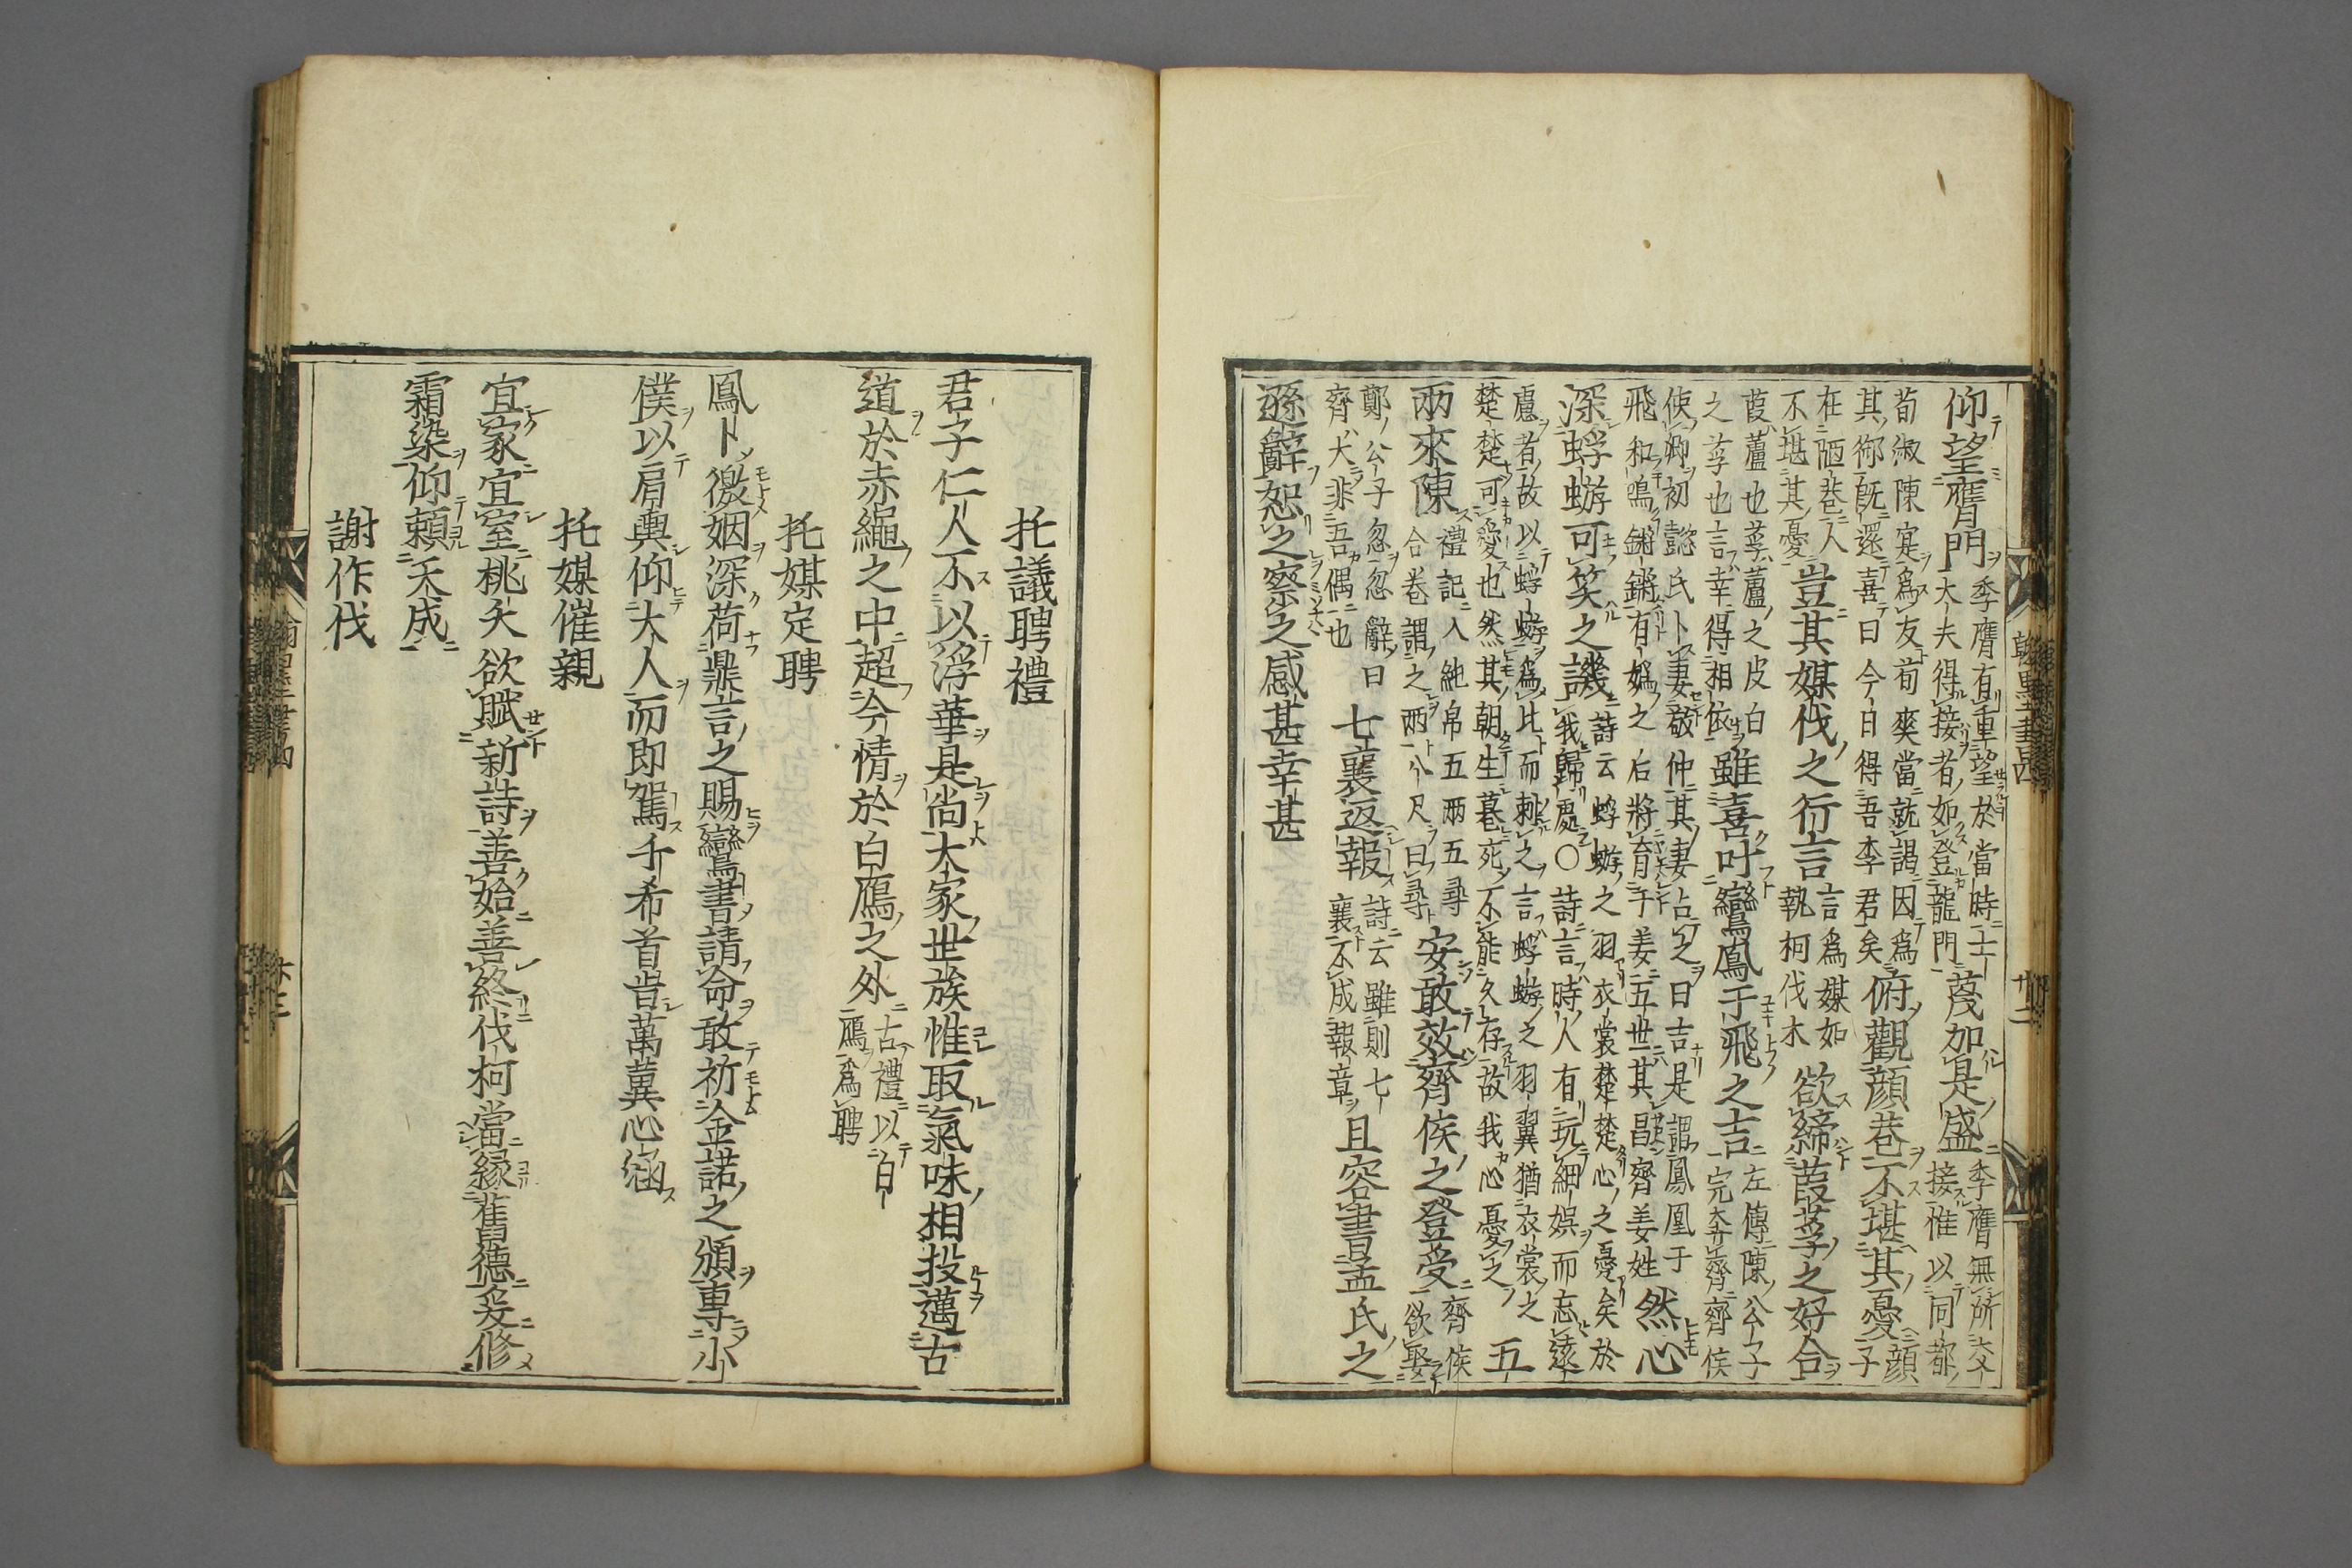 仰望膺門季膺有重望於當時士
大夫得接者如登龍門茂加是盛季膺無所交
接惟以同郡
荀淑陳寔爲友荀爽當就謁因爲
其御既還喜曰今日得吾李君矣俯觀顔巷不堪其憂顔
子
在陋巷人
不堪其憂豈其媒伐之行言言爲媒如
執柯伐木欲締葭莩之好合
葭蘆也莩蘆之皮白
之莩也言幸得相依雖喜叶鸞鳳于飛之吉左傳陳公子
完奔齊齊侯
使卿初懿氏卜妻敬仲其妻占之曰吉是謂鳳凰于
飛和鳴鏘鏘有嬀之后將育于姜五世其昌齊姜姓然心
深蜉蝣可笑之譏詩云蜉蝣之羽衣裳楚楚心之憂矣於
我歸處〇詩言時人有玩細娯而忘遠
慮者故以蜉蝣爲比而刺之言蜉蝣之羽翼猶衣裳之
楚楚可愛也然其朝生暮死不能久存故我心憂之五
兩來陳禮記入純帛五兩五尋
合卷謂之兩八尺曰尋安敢效齊侯之登受齊侯
欲娶
鄭公子忽忽辭曰
齊大非吾偶也七襄返報詩云雖則七
襄不成報章且容書孟氏之
遜辭恕之察之感甚幸甚
托議聘禮
君子仁人不以浮華是尚大家世族惟取氣味相投邁古
道於赤繩之中超今情於白鴈之外古禮以白
鴈爲聘
托媒定聘
鳳卜徼姻深荷鼎言之賜鸞書請命敢祈金諾之頒專小
僕以肩輿仰大人而即駕千希首肯萬冀心涵
托媒催親
宜家宜室桃夭欲賦新詩善始善終伐柯當縁舊德爰修
霜染仰頼天成
謝作伐